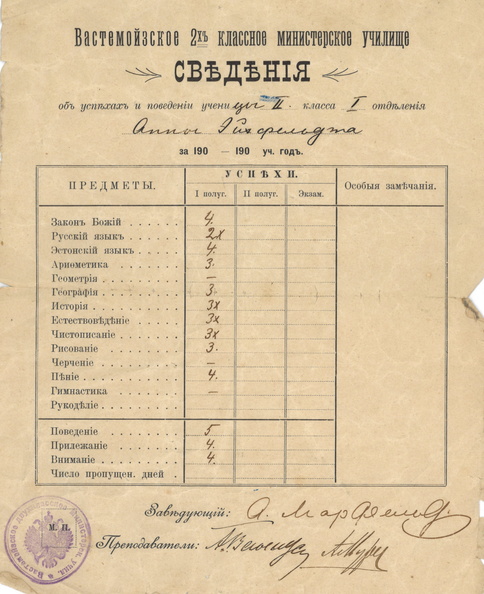 Вастемойзское 2хъ классное министерское училище
СВѢДѢНІЯ
объ успѣхахъ и поведеніи учени цы II. класса I отдѣленія
Анны
за 190 — 190 уч. годъ.
ПРЕДМЕТЫ. УСПѢХИ. Особыя замѣчанія.
I полуг. II полуг. Экзам.
Законъ Божій 4.
Русскій языкъ 2x
Эстонскій языкъ 4.
Ариѳметика 3.
Геометрія —
Географія 3.
Исторія 3x
Естествовѣдѣніе 3x
Чистописаніе 3x
Рисованіе 3.
Черченіе —
Пѣніе 4.
Гимнастика —
Рукодѣліе
Поведеніе 5
Прилежаніе 4.
Вниманіе 4.
Число пропущен. дней
Завѣдующій: А.
М. П.
Преподаватели: